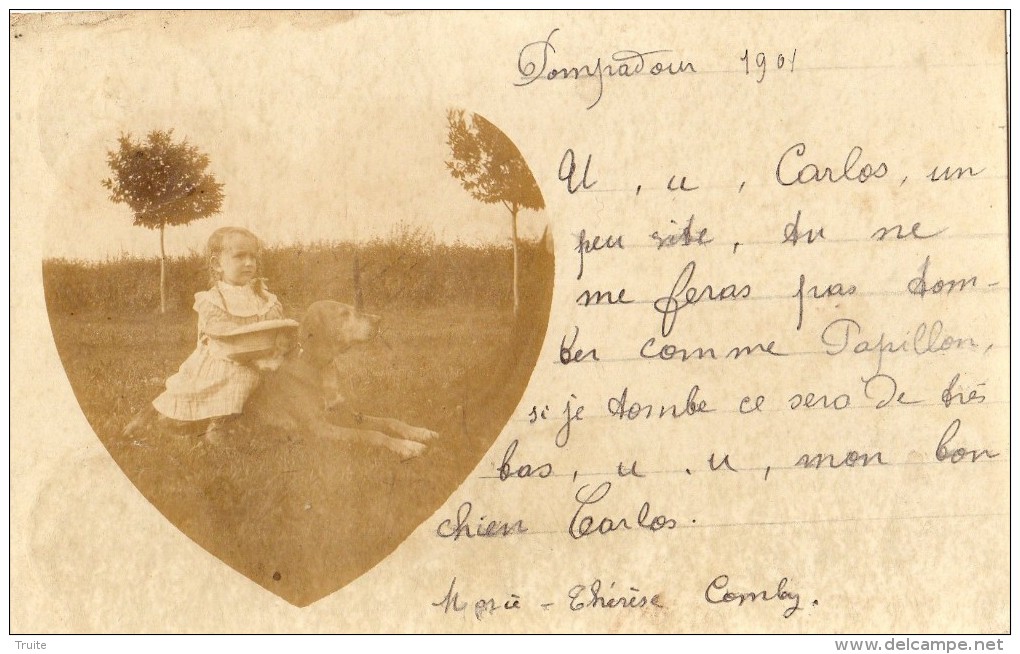 Pompadour 1901
U, u, Carlos, un
peu vite, tu ne
me feras pas tom-
ber comme Papillon,
si je tombe ce sera de très
bas, u. u, mon bon
chien Carlos.
Marie-Thérèse Comby.
Truite
www.delcampe.net